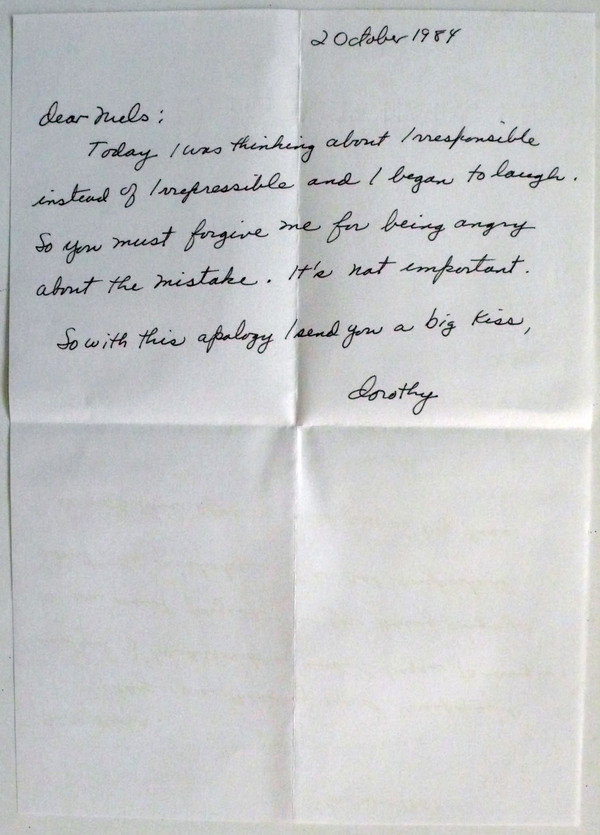 2 October 1984
Dear Niels:
Today I was thinking about Irresponsible
instead of Irrepressible and I began to laugh.
So you must forgive me for being angry
about the mistake. It's not important.
So with this apology I send you a big kiss,
Dorothy